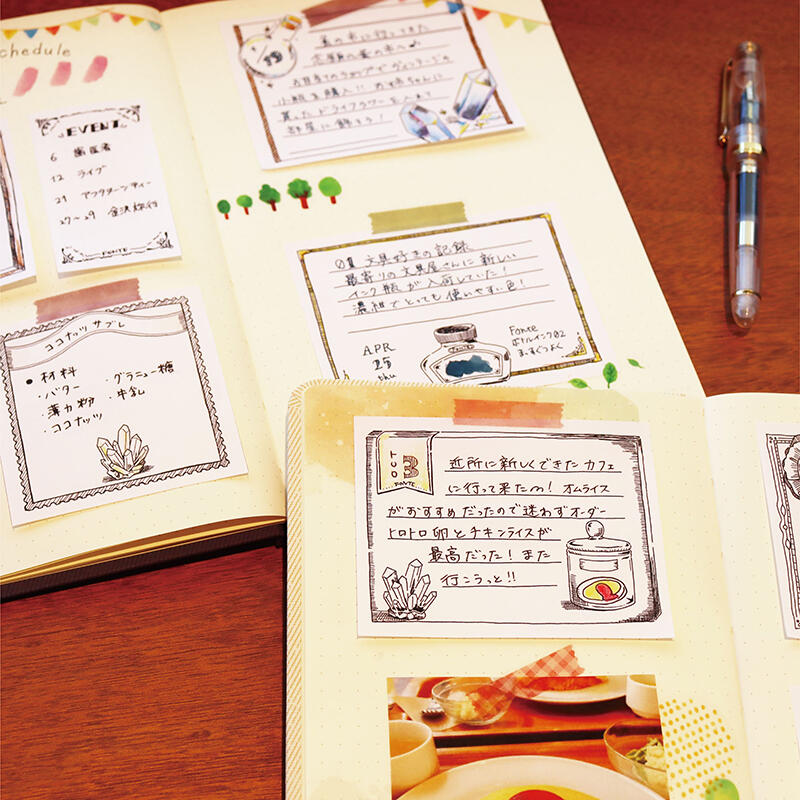 chedule
EVENT
6 歯医者
12 ライブ
21 アフタヌーンティー
27〜29 金沢旅行
FONTE
ココナッツサブレ
● 材料
・バター ・グラニュー糖
・薄力粉 ・牛乳
・ココナッツ
19
蚤の市に行ってきた
お目当てのショップでヴィンテージの
小瓶を購入!!
買ったドライフラワーを入れて
部屋に飾ろう!
01 文具好きの記録
最寄りの文具屋さんに新しい
インク瓶が入荷していた!
濃紺でとっても使いやすい色!
APR
25
thu
Fonte
ボトルインク02
まっすぐつよく
OCT
3
FONTE
近所に新しくできたカフェ
に行って来たの! オムライス
がおすすめだったので迷わずオーダー
トロトロ卵とチキンライスが
最高だった! また
行こうっと!!